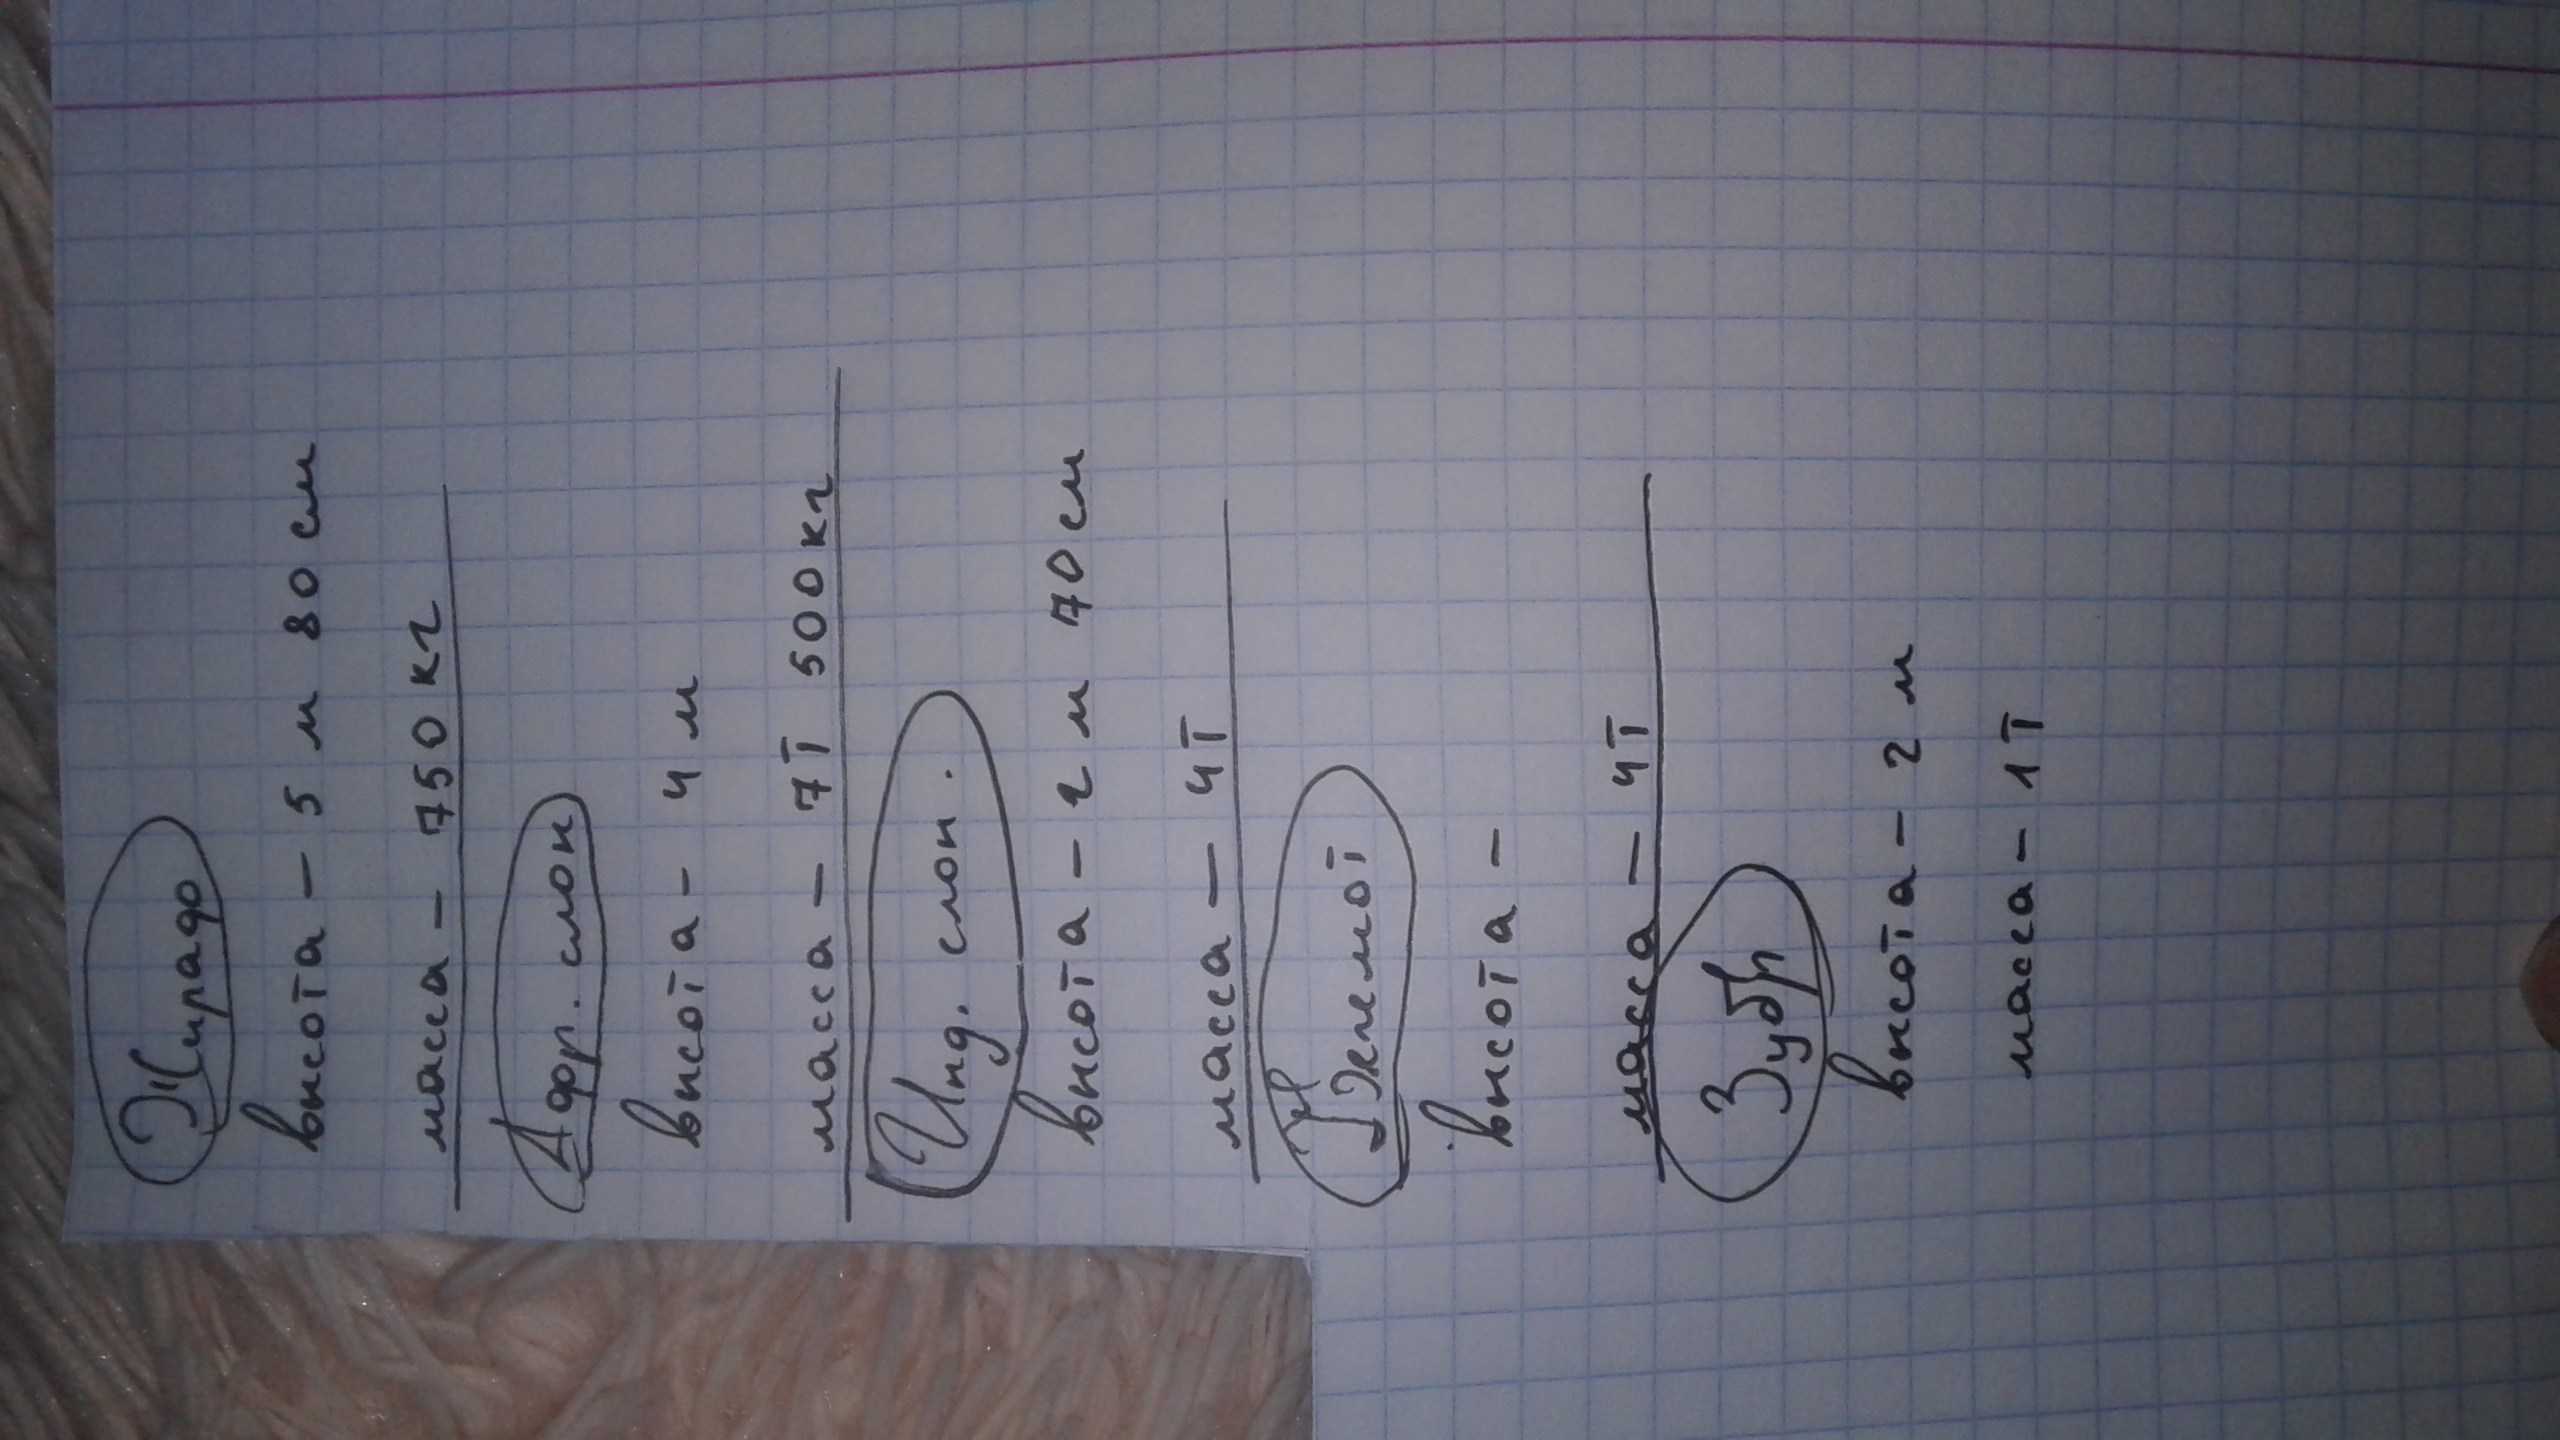 Жирафо
высота - 5 м 80 см
масса - 750 кг
Афр. слон
высота - 4 м
масса - 7т 500кг
Инд. слон.
высота - 2 м 70 см
масса - 4т
высота -
масса - 4т
Зубр
высота - 2 м
масса - 1т